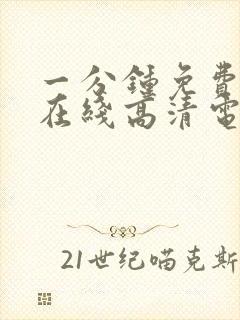 一分鍾免费
在綫高清電
21世纪喵克斯